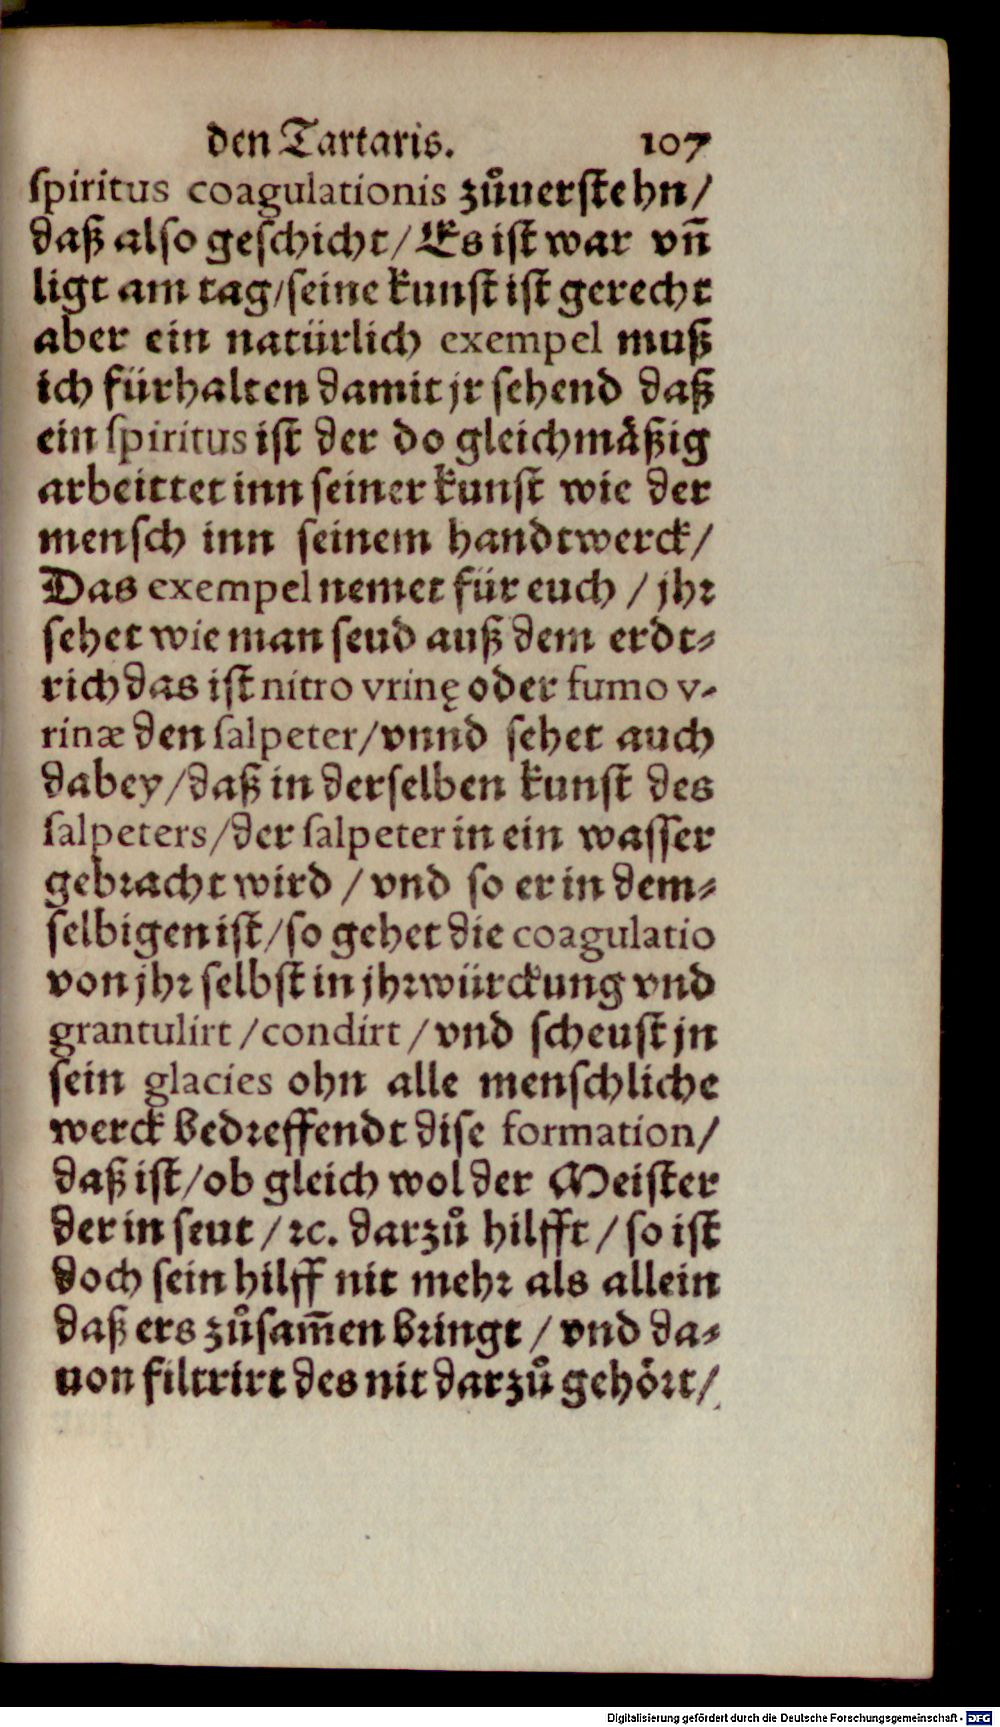 den Tartaris. 107
ſpiritus coagulationis zůuerſtehn/
daß alſo geſchicht/ Es iſt war vñ
ligt am tag/ſeine kunſt iſt gerecht
aber ein natürlich exempel muß
ich fürhalten damit jr ſehend daß
ein ſpiritus iſt der do gleichmäßig
arbeittet inn ſeiner kunſt wie der
menſch inn ſeinem handtwerck/
Das exempel nemet für euch / jhr
ſehet wie man ſeud auß dem erdt⸗
rich das iſt nitro vrinę oder fumo v-
rinæ den ſalpeter/vnnd ſehet auch
dabey/daß in derſelben kunſt des
ſalpeters/der ſalpeter in ein waſſer
gebracht wird / vnd ſo er in dem⸗
ſelbigen iſt/ſo gehet die coagulatio
von jhr ſelbſt in jhr würckung vnd
grantulirt /condirt / vnd ſcheuſt jn
ſein glacies ohn alle menſchliche
werck bedreffendt diſe formation/
daß iſt/ob gleich wol der Meiſter
der in ſeut / ꝛc. darzů hilfft / ſo iſt
doch ſein hilff nit mehr als allein
daß ers zůſam̃en bringt / vnd da⸗
uon filtrirt des nit darzů gehört/
Digitalisierung gefördert durch die Deutsche Forschungsgemeinschaft - DFG